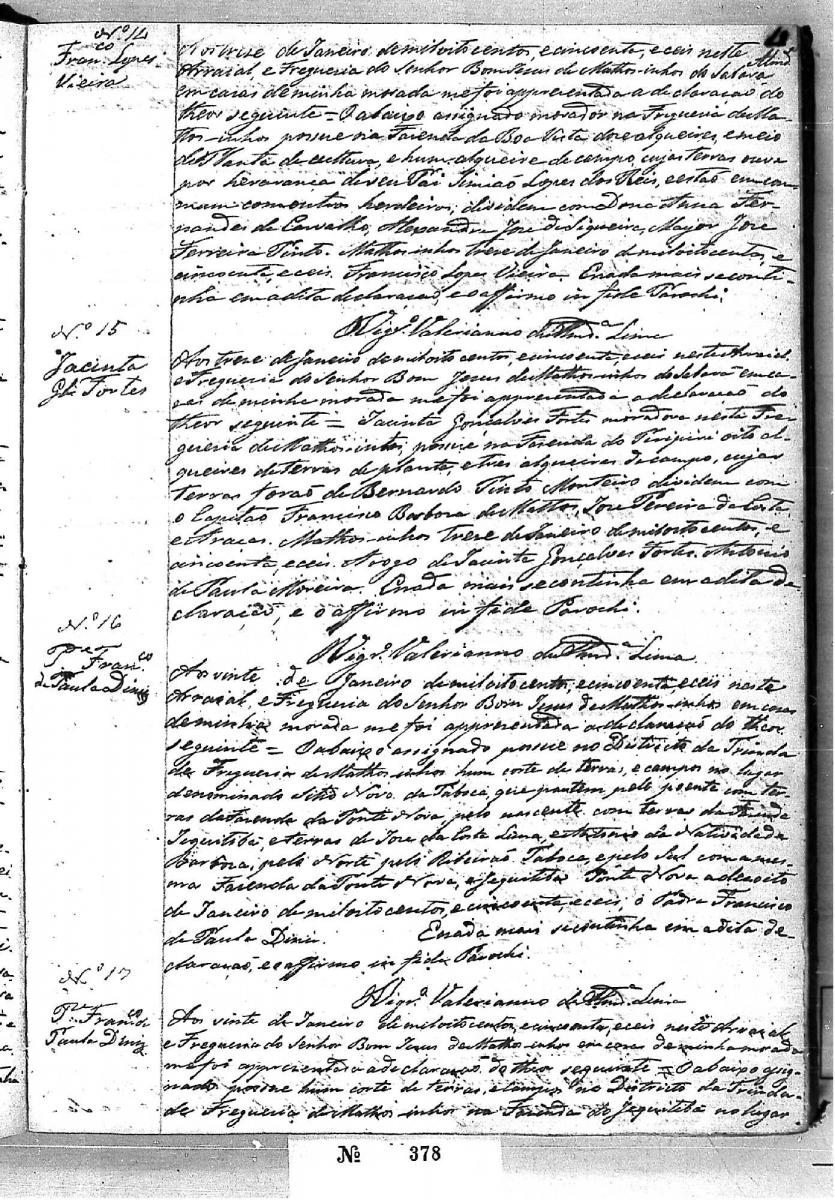 4
Nº 14
Franco Lopes
Vieira
Aos trese de Janeiro de mil oito centos, e cincoenta, e ceis neste
Arraial, e Freguesia do Senhor Bom Jesus de Mathosinhos do
em casas de minha morada me foi appresentada a declaração do
theor seguinte = O abaixo assignado morador na Freguesia de Ma-
thosinhos possue na Fazenda da Boa Vista dose alqueires, e meio
de Planta de cultura, e hum alqueire de campo, cujas terras ouve
por herança de seu Pai Simião Lopes dos Reis, e estão em com-
mum com outros herdeiros, dividem com Dona Anna Fer-
nandes de Carvalho, Alexandre Jose de Siqueira, Mayor Jose
Ferreira Pinto. Mathosinhos trese de Janeiro de mil oito centos, e
cincoenta, e ceis. Francisco Lopes Vieira. E nada mais se conti-
nha em a dita declaração, e o affirmo in fide Parochi.
Vigrº Valerianno de Lima
Nº 15
Jacinta
Glz Fortes
Aos trese de Janeiro de mil oito centos, e cincoenta, e ceis neste Arraial,
e Freguesia do Senhor Bom Jesus de Mathosinhos do em ca-
sas de minha morada me foi appresentada a declaração do
theor seguinte = Jacinta Gonçalves Fortes moradora nesta Fre-
guesia de Mathosinhos, possue na Fazenda do oito al-
queires de terras de planta, e tres alqueires de campo, cujas
terras forão de Bernardo Pinto Monteiro dividem com
o Capitão Francisco Barbosa de Mattos, Jose Pereira da Costa
e Mathosinhos trese de Janeiro de mil oito centos, e
cincoenta, e ceis. A rogo de Jacinta Gonçalves Fortes. Antonio
de Paula Moreira. E nada mais se continha em a dita de-
claração, e o affirmo in fide Parochi.
Vigrº Valerianno de Lima
Nº 16
Pe Franco
de Paula Diniz
Aos vinte de Janeiro de mil oito centos, e cincoenta e ceis neste
Arraial, e Freguesia do Senhor Bom Jesus de Mathosinhos em casas
de minha morada me foi appresentada a declaração do theor
seguinte = O abaixo assignado possue no Districto da Trinda-
de Freguesia de Mathosinhos hum corte de terras, e campos no lugar
denominado Sitio Novo da Taboca, que partem pelo poente com ter-
ras da Fazenda da Ponte Nova, pelo nascente com terras da
Jequitibá, e terras de Jose da Costa Lima, e Antonio da Natividade
Barbosa, pelo Norte pelo Ribeirão Taboca, e pelo Sul com a mes-
ma Fazenda da Ponte Nova, e Jequitibá. Ponte Nova a desoito
de Janeiro de mil oito centos, e cincoenta, e ceis, o Padre Francisco
de Paula Diniz. E nada mais se continha em a dita de-
claração, e o affirmo in fide Parochi.
Vigrº Valerianno de Lima
Nº 17
Pe Franco de
Paula Diniz
Aos vinte de Janeiro de mil oito centos, e cincoenta, e ceis neste Arraial
e Freguesia do Senhor Bom Jesus de Mathosinhos em casas de minha morada
me foi appresentada a declaração do theor seguinte = O abaixo assig-
nado possue hum corte de terras, e campos no Districto da Trinda-
de Freguesia de Mathosinhos na Fazenda do Jequitibá no lugar
Nº 378